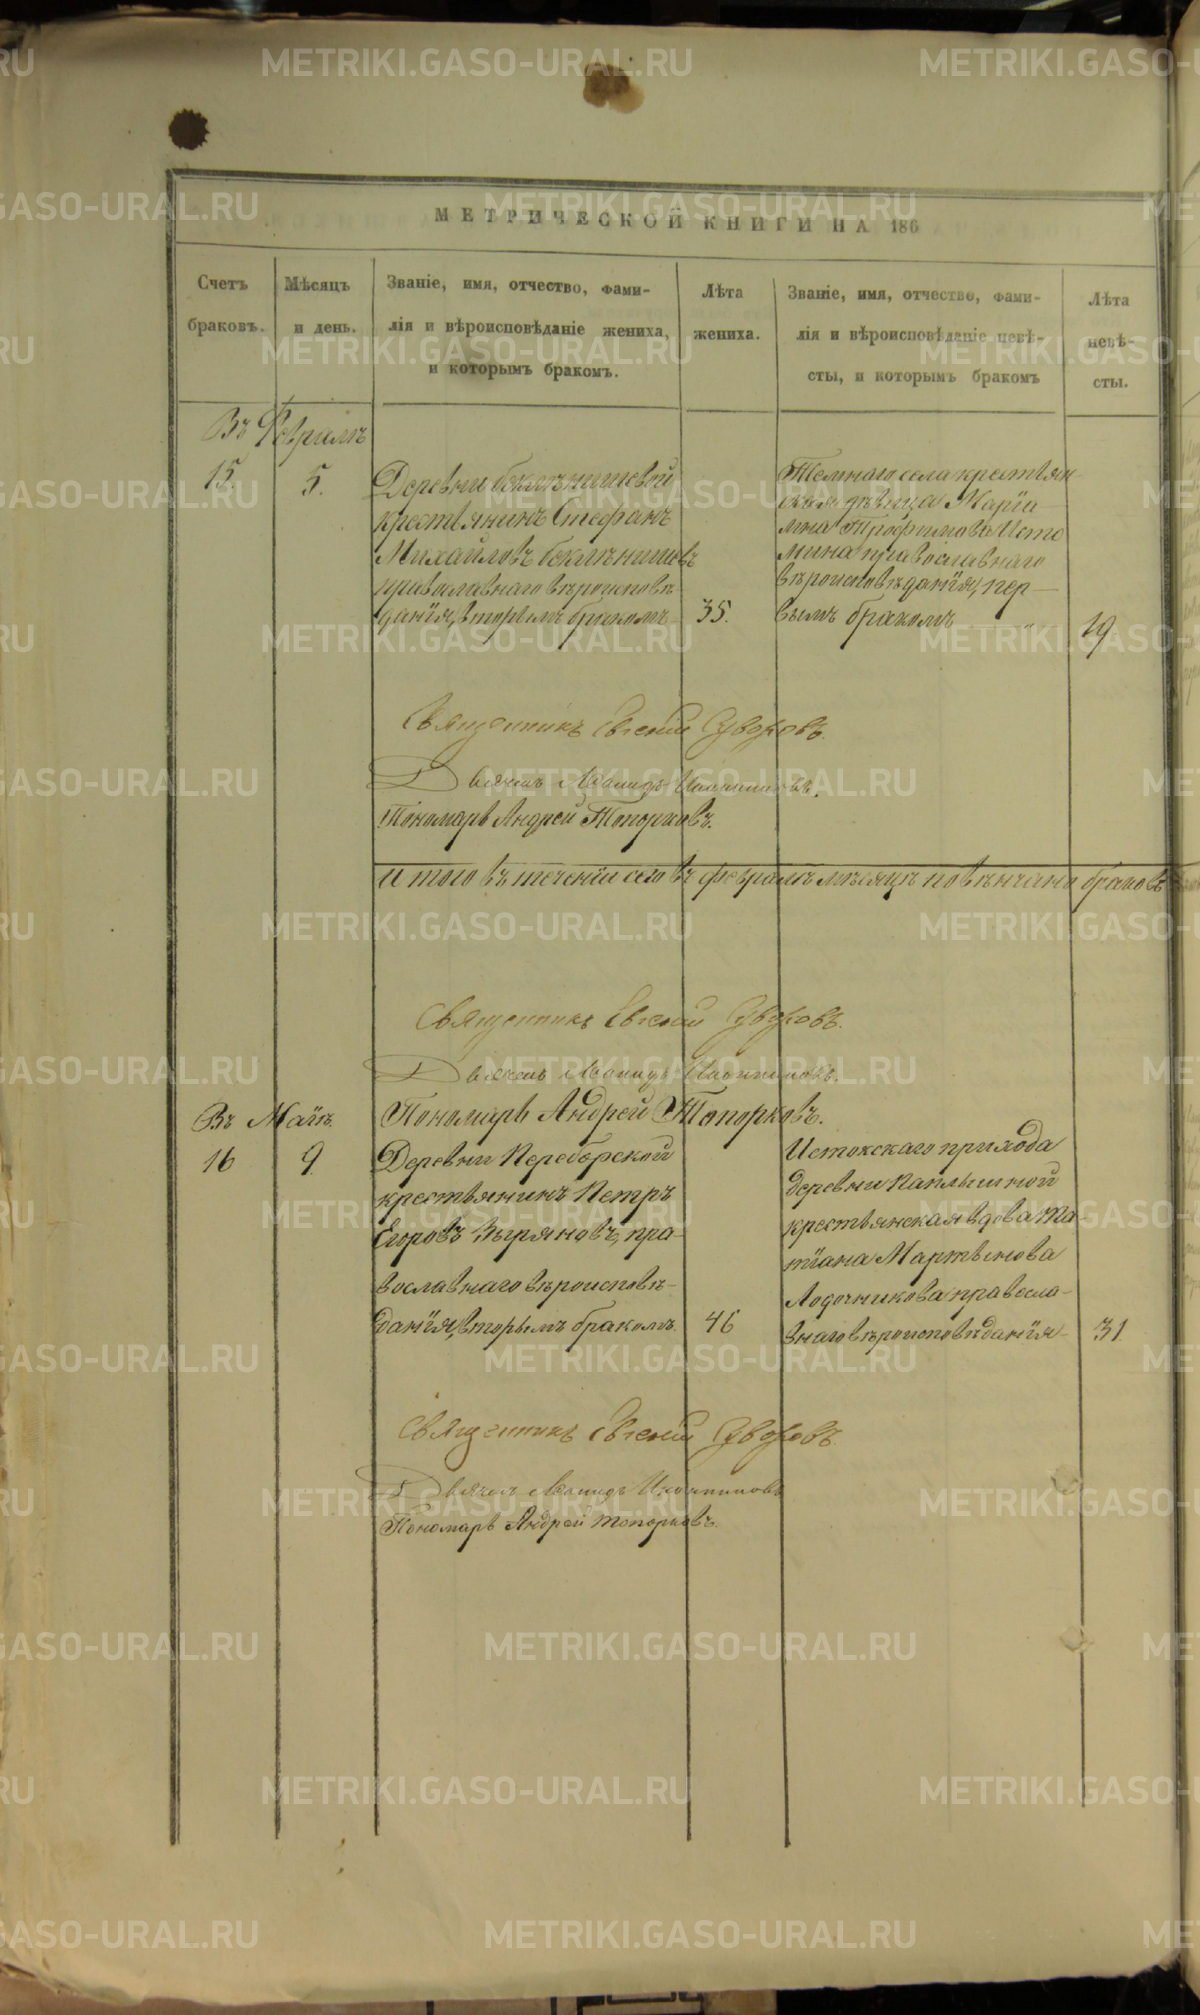 МЕТРИЧЕСКОЙ КНИГИ НА 186
Счетъ браковъ.
Мѣсяцъ и день.
Званіе, имя, отчество, фами-
лія и вѣроисповѣданіе жениха,
и которымъ бракомъ.
Лѣта жениха.
Званіе, имя, отчество, фами-
лія и вѣроисповѣданіе невѣ-
сты, и которымъ бракомъ
Лѣта невѣ-
сты.
Въ Февралѣ
15. 5.
Деревни Беклѣнишевой
крестьянинъ Стефанъ
Михайловъ Беклѣнишевъ
православнаго вѣроисповѣ
данія, вторымъ бракомъ
35.
села крестьян
ская дѣвица Марія
Трофимова Исто
мина православнаго
вѣроисповѣданія, пер
вымъ бракомъ
19
Священникъ Евгеній Суворовъ.
Дьячекъ Леонидъ
Пономарь Андрей Топорковъ.
Итого въ теченіи сего въ февралѣ мѣсяцѣ повѣнчано браковъ
Священникъ Евгеній Суворовъ.
Дьячекъ Леонидъ
Пономарь Андрей Топорковъ.
Въ Маіѣ.
16 9
Деревни Переборской
крестьянинъ Петръ
Егоровъ Зыряновъ, пра-
вославнаго вѣроисповѣ-
данія, вторымъ бракомъ.
46
Истокскаго прихода
деревни
крестьянская вдова Та-
тіана Мартынова
Лодочникова правосла-
внаго вѣроисповѣданія
31.
Священникъ Евгеній Суворовъ.
Дьячекъ Леонидъ
Пономарь Андрей Топорковъ.
METRIKI.GASO-URAL.RU